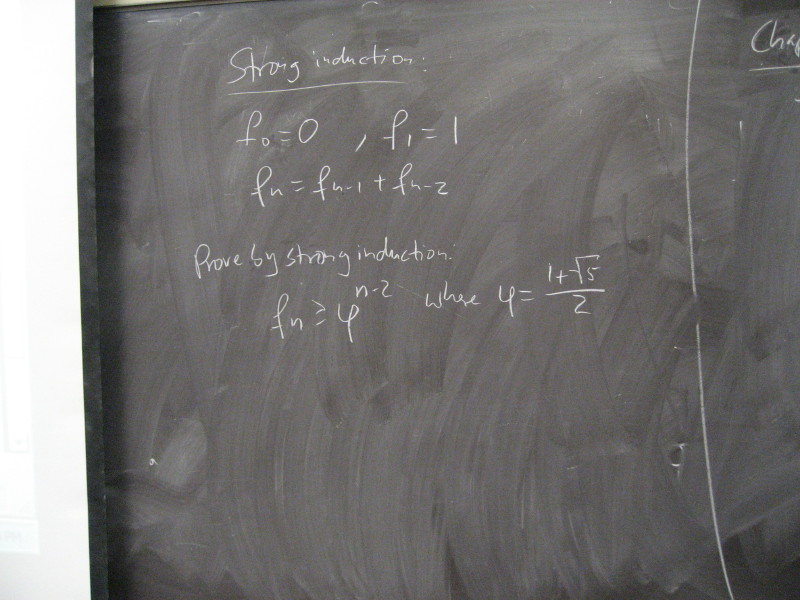 Strong induction:
f₀ = 0 , f₁ = 1
fₙ = fₙ₋₁ + fₙ₋₂
Prove by strong induction:
fₙ ≥ φⁿ⁻² where φ = (1+√5)/2
Chap